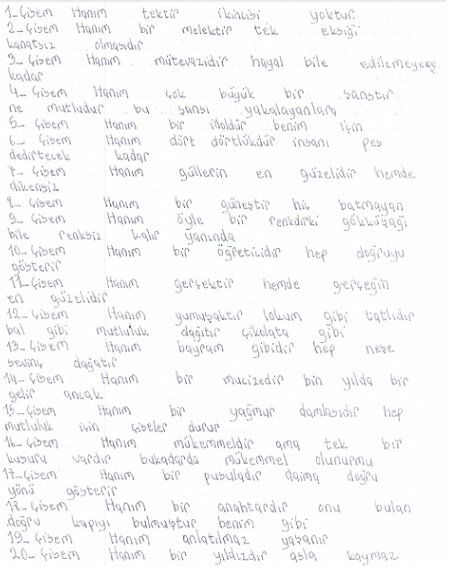 1_ Çisem Hanım tektir ikincisi yoktur.
2_ Çisem Hanım bir melektir tek eksiği
kanatsız olmasıdır
3_ Çisem Hanım mütevazidir hayal bile edilemeyecek
kadar
4_ Çisem Hanım çok büyük bir şanstır
ne mutludur bu şansı yakalayanlara
5_ Çisem Hanım bir idoldür benim için
6_ Çisem Hanım dört dörtlüktür insanı pes
dedirtecek kadar
7_ Çisem Hanım güllerin en güzelidir hemde
dikensiz
8_ Çisem Hanım bir güneştir hiç batmayan
9_ Çisem Hanım öyle bir renkdirki gökkuşağı
bile renksiz kalır yanında
10_ Çisem Hanım bir öğreticidir hep doğruyu
gösterir
11_ Çisem Hanım gerçektir hemde gerçeğin
en güzelidir
12_ Çisem Hanım yumuşaktır lokum gibi tatlıdır
bal gibi mutluluk dağıtır çikolata gibi
13_ Çisem Hanım bayram gibidir hep neşe
sevinç dağatır
14_ Çisem Hanım bir mucizedir bin yılda bir
gelir ancak
15_ Çisem Hanım bir yağmur damlasıdır hep
mutluluk için çiseler durur
16_ Çisem Hanım mükemmeldir ama tek bir
kusuru vardır bukadarda mükemmel olunurmu
17_ Çisem Hanım bir pusuladır daima doğru
yönü gösterir
18_ Çisem Hanım bir anahtardır onu bulan
doğru kapıyı bulmuştur benim gibi
19_ Çisem Hanım anlatılmaz yaşanır
20_ Çisem Hanım bir yıldızdır asla kaymaz.